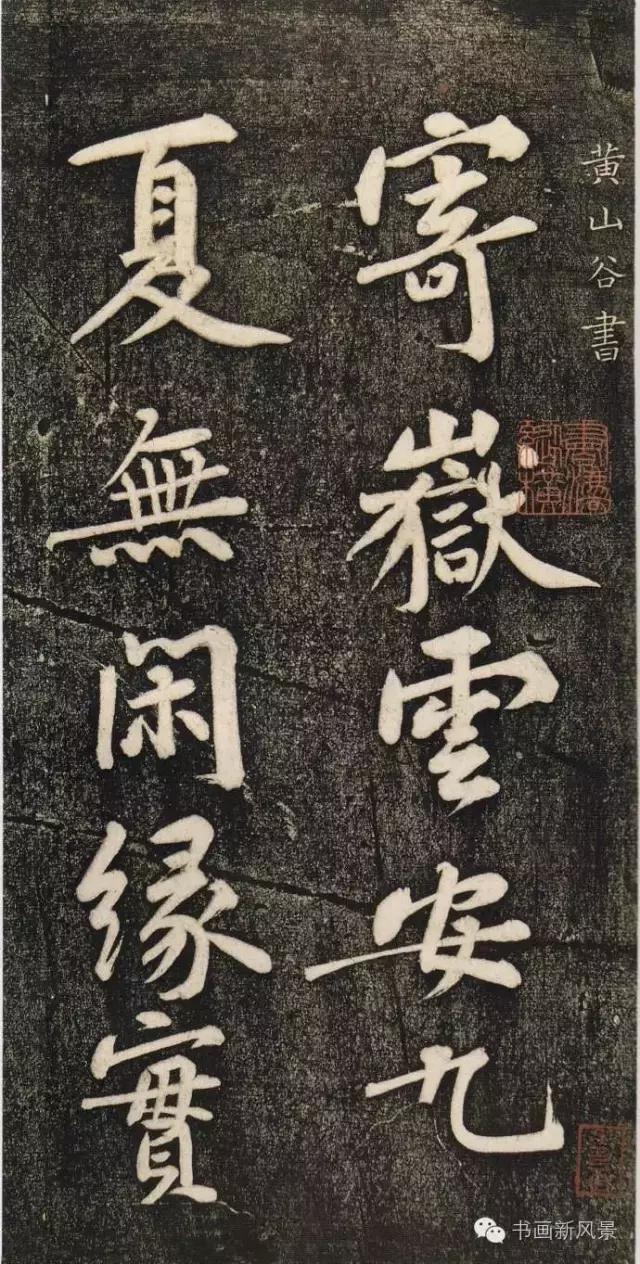 黄山谷書
寄嶽雲安九
夏無閑緣實
书画新风景